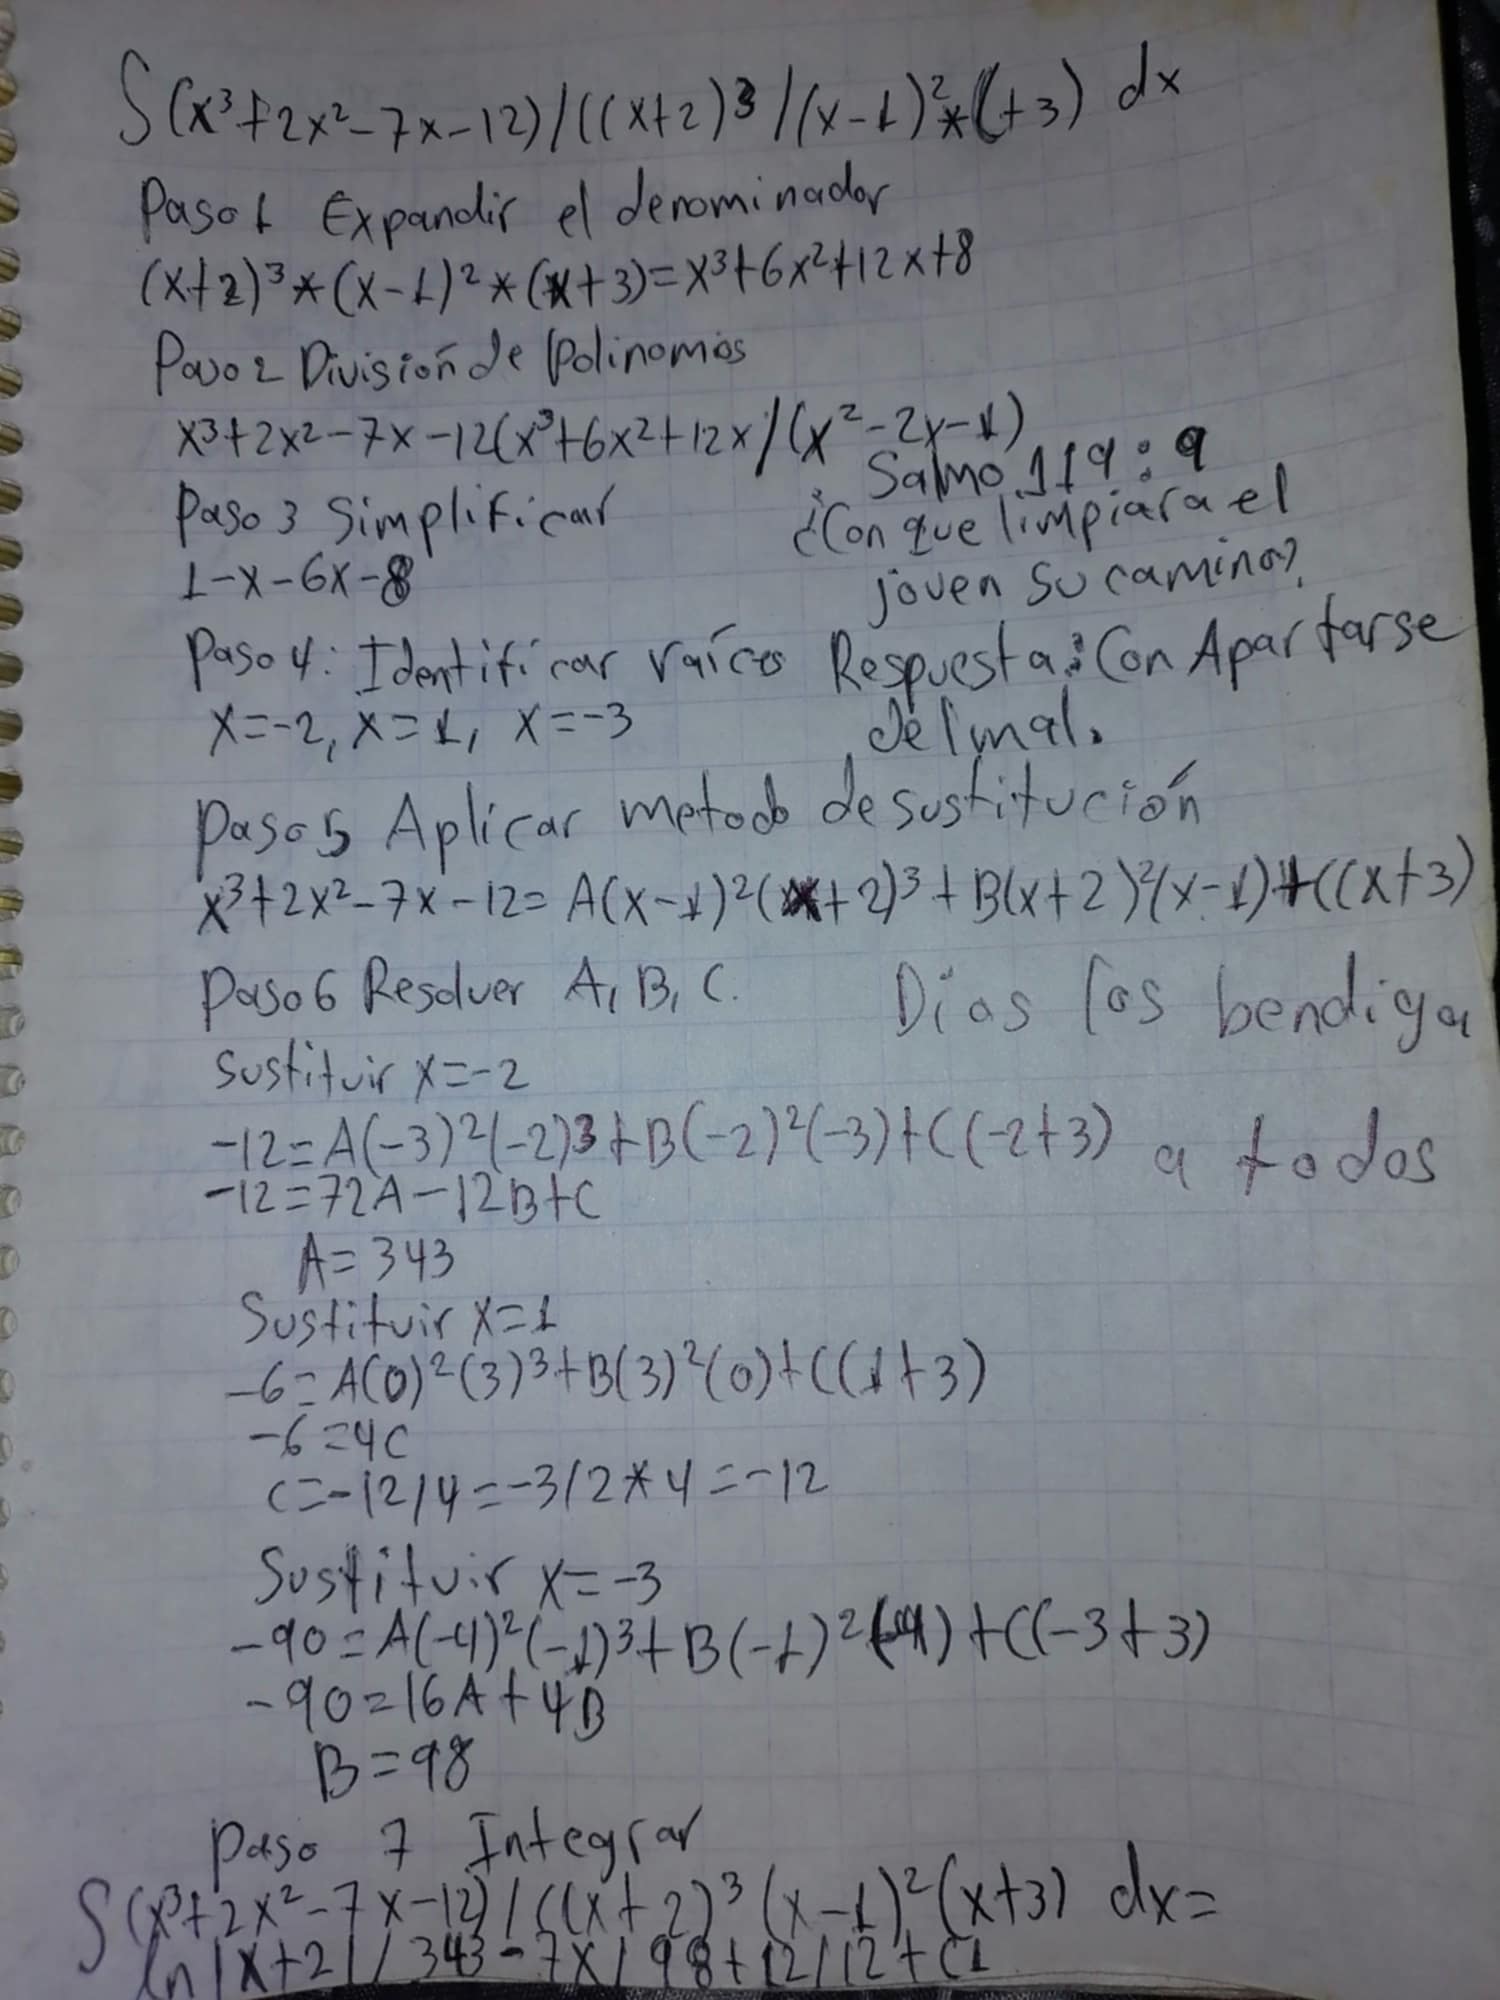 ∫(x³+2x²-7x-12)/((x+2)³/(x-1)²*(+3) dx
Paso 1 Expandir el denominador
(x+2)³*(x-1)²*(x+3)=x³+6x²+12x+8
Paso 2 División de Polinomios
x³+2x²-7x-12(x³+6x²+12x/(x²-2x-1)
Salmo 119:9
Paso 3 Simplificar
¿Con que limpiara el
1-x-6x-8
joven su camino?
Paso 4: Identificar raíces
Respuesta: Con Apartarse
x=-2, x=1, x=-3
del mal.
Paso 5 Aplicar metodo de sustitución
x³+2x²-7x-12=A(x-1)²(x+2)³+B(x+2)²(x-1)+C(x+3)
Paso 6 Resolver A, B, C.
Dios los bendiga
Sustituir x=-2
-12=A(-3)²(-2)3+B(-2)²(-3)+C(-2+3)
a todos
-12=72A-12B+C
A=343
Sustituir x=1
-6=A(0)²(3)³+B(3)²(0)+C(1+3)
-6=4C
C=-12/4=-3/2*4=-12
Sustituir x=-3
-90=A(-4)²(-1)³+B(-1)²(-4)+C(-3+3)
-90=16A+4B
B=98
Paso 7 Integrar
∫(x³+2x²-7x-12)/((x+2)³(x-1)²(x+3) dx=
ln|x+2|/343-7x/98+12/12+C1